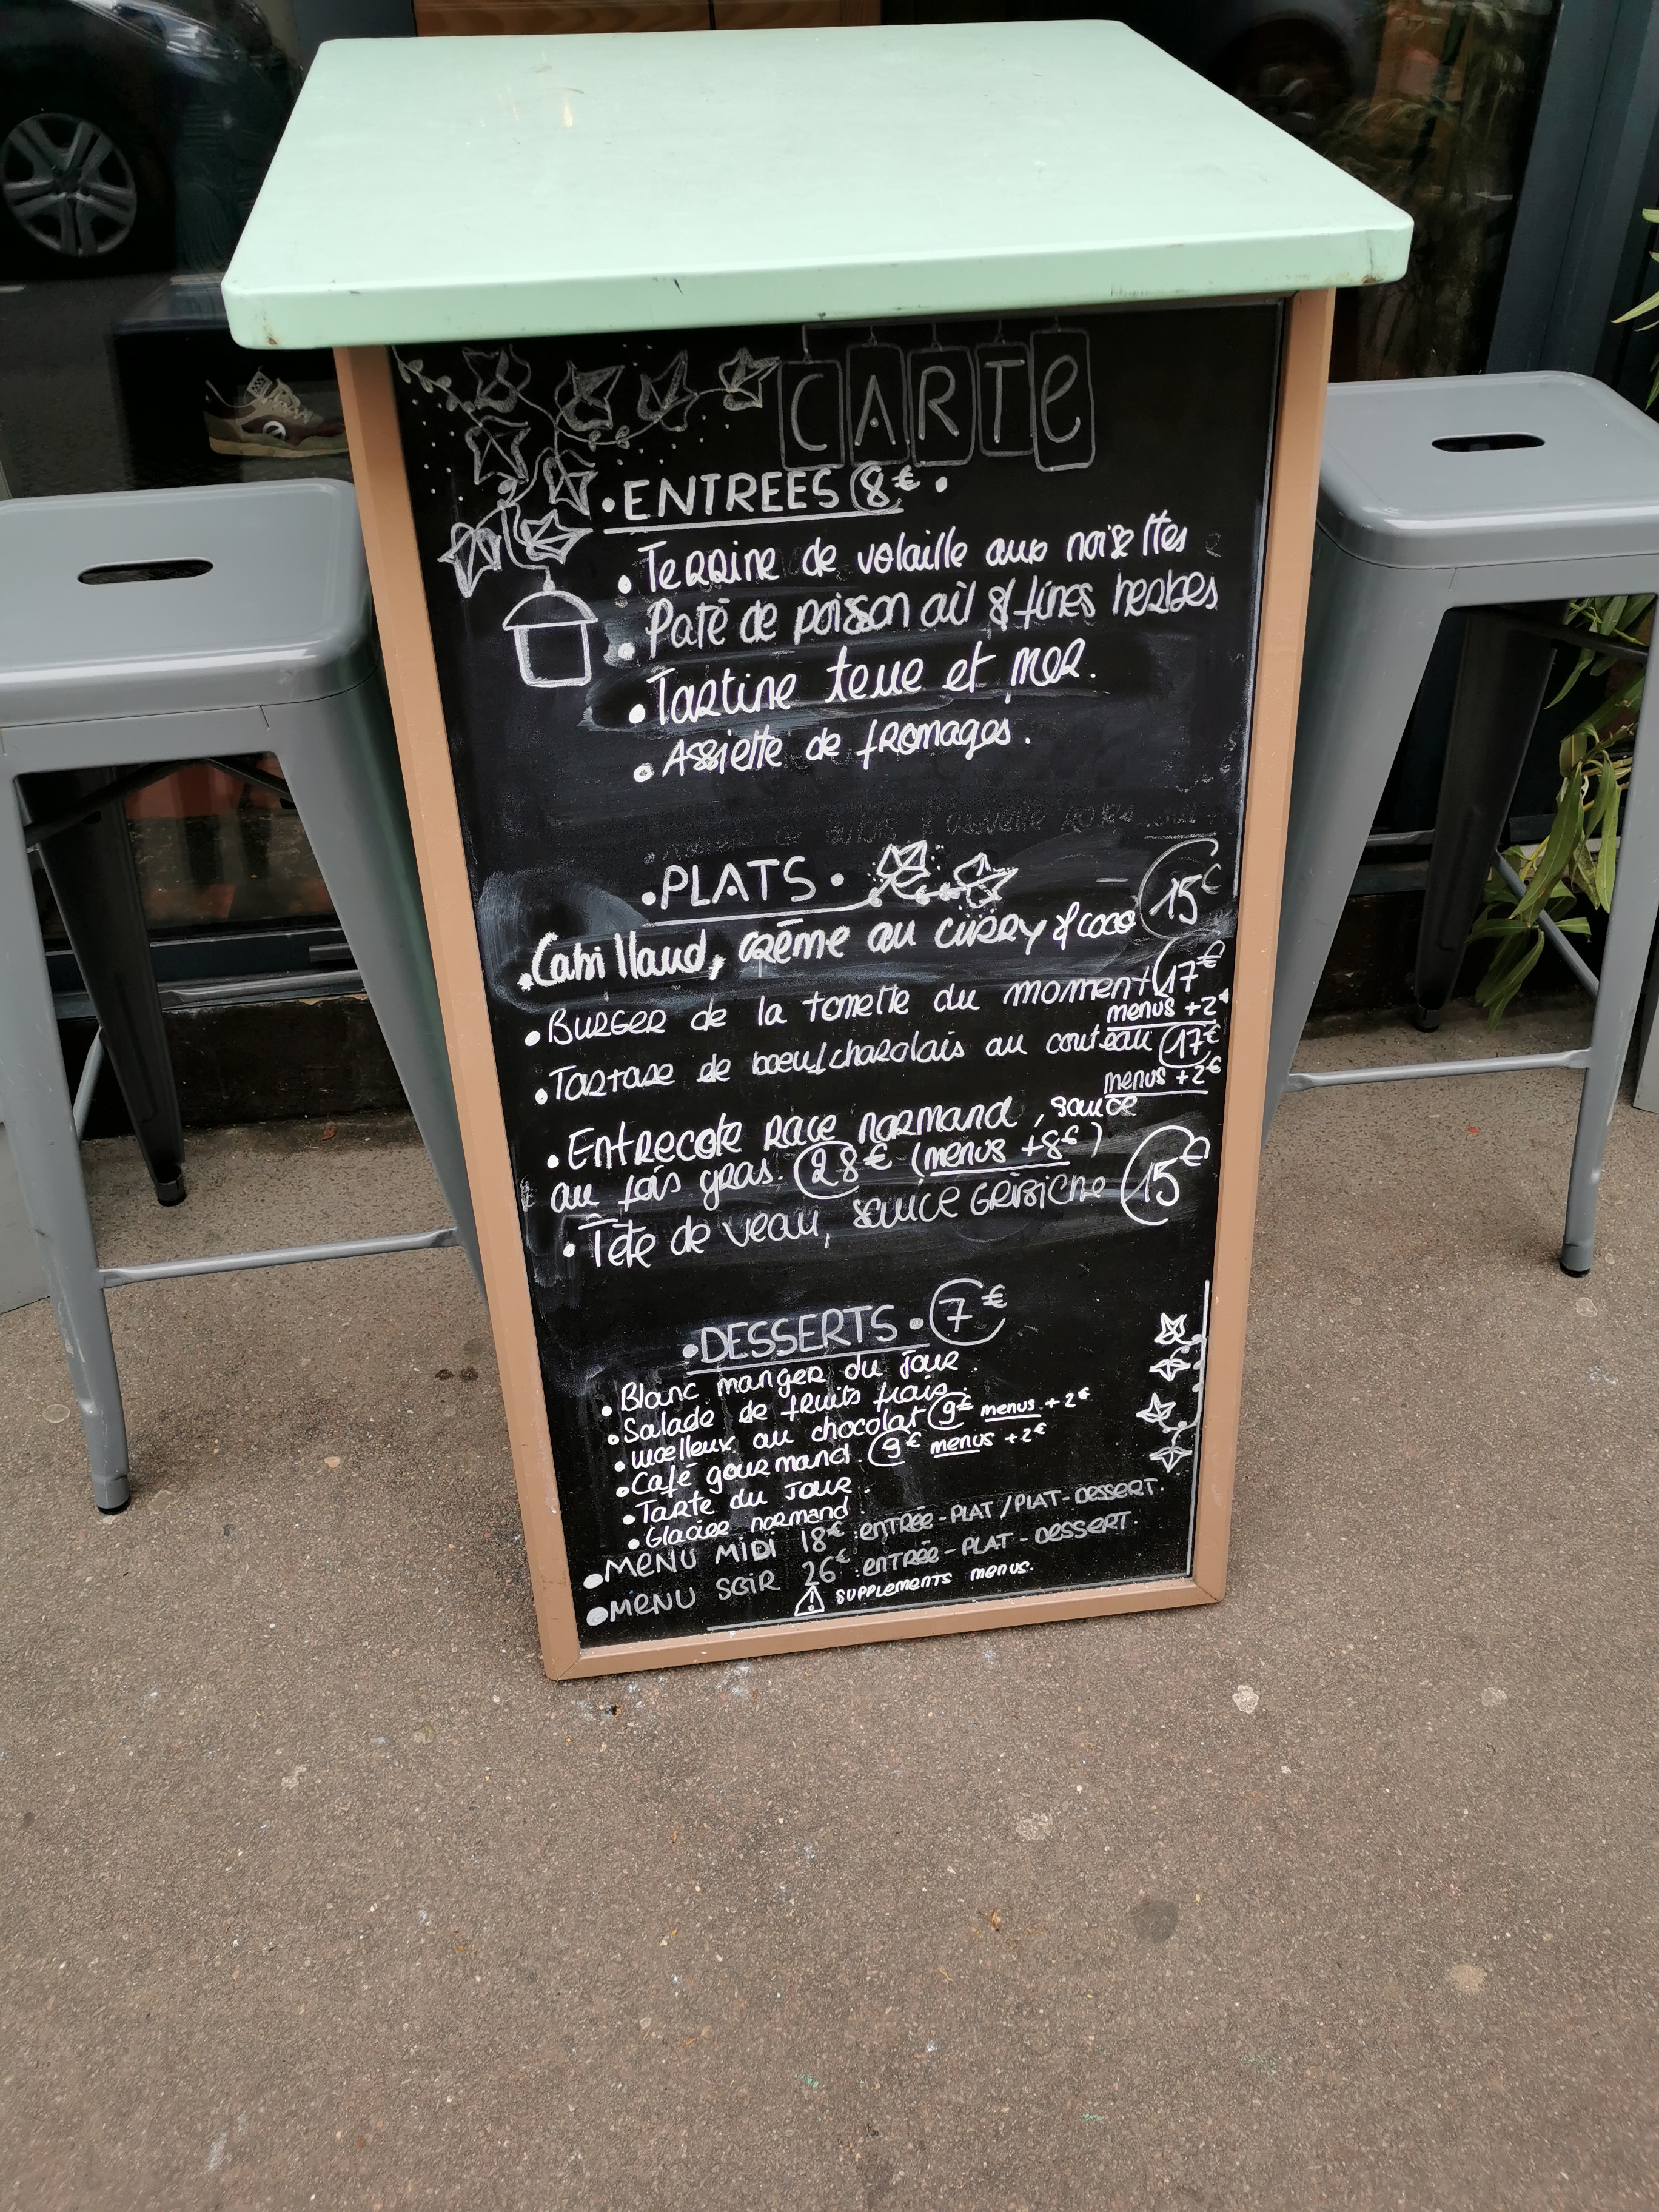 CARTe
• ENTREES 8€ •
• Terrine de volaille aux noisettes
• Paté de poisson ail & fines herbes
• Tartine terre et mer.
• Assiette de fromages.
• PLATS •
• Cabillaud, crème au curry & coco 15€
• Burger de la tomette du moment 17€
menus +2€
• Tartare de boeuf charolais au couteau 17€
menus +2€
• Entrecote race normand, sauce
au fois gras. 28€ (menus +8€)
• Tête de veau, sauce GRIBICHE 15€
• DESSERTS • 7€
• Blanc manger du jour.
• Salade de fruits frais.
• moelleux au chocolat 9€ menus +2€
• Café gourmand. 9€ menus +2€
• Tarte du jour.
• Glacier normand
• MENU MIDI 18€: entrée-PLAT/PLAT-Dessert.
• MENU SOIR 26€: entrée-PLAT-Dessert.
⚠ supplements menus.